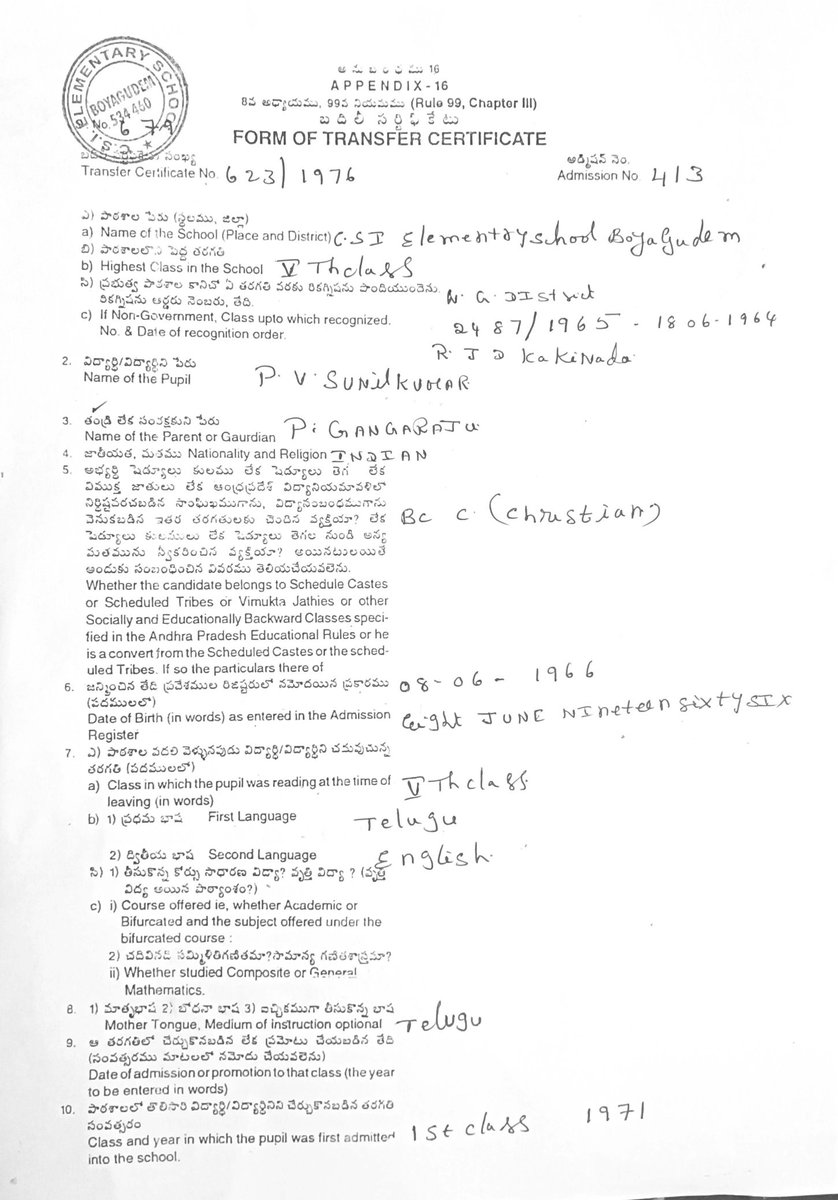 C.S.I. ELEMENTARY SCHOOL
BOYAGUDEM
No. 534 460
అనుబంధము 16
APPENDIX - 16
8వ అధ్యాయము, 99వ నియమము (Rule 99, Chapter III)
బదిలీ సర్టిఫికేటు
FORM OF TRANSFER CERTIFICATE
Transfer Certificate No. 623/1976
అడ్మిషన్ నెం.
Admission No. 413
ఎ) పాఠశాల పేరు (స్థలము, జిల్లా)
a) Name of the School (Place and District) C.S I Elementary school Boyagudem
బి) పాఠశాలలోని పెద్ద తరగతి
b) Highest Class in the School V Th class
సి) ప్రభుత్వ పాఠశాల కానిచో ఏ తరగతి వరకు రికగ్నిషను పొందియుండెను.
రికగ్నిషను ఆర్డరు నెంబరు, తేది. W. G. DIstrict
c) If Non-Government, Class upto which recognized.
No. & Date of recognition order. 2487/1965 - 18 06-1964
R. J D KaKiNada
2. విద్యార్థి/విద్యార్థిని పేరు
Name of the Pupil P. V. SUNilKUMAR
3. తండ్రి లేక సంరక్షకుని పేరు
Name of the Parent or Gaurdian P. GANGARAJU
4. జాతీయత, మతము Nationality and Religion INDIAN
5. అభ్యర్థి షెడ్యూలు కులము లేక షెడ్యూలు తెగ లేక
విముక్త జాతులు లేక ఆంధ్రప్రదేశ్ విద్యానియమావళిలో
నిర్దిష్టపరచబడిన సాంఘికముగాను, విద్యాసంబంధముగాను
వెనుకబడిన ఇతర తరగతులకు చెందిన వ్యక్తియా? లేక BC C. (Christian)
షెడ్యూలు కులములు లేక షెడ్యూలు తెగల నుండి అన్య
మతమును స్వీకరించిన వ్యక్తియా? అయినటులయితే
అందుకు సంబంధించిన వివరము తెలియచేయవలెను.
Whether the candidate belongs to Schedule Castes
or Scheduled Tribes or Vimukta Jathies or other
Socially and Educationally Backward Classes speci-
fied in the Andhra Pradesh Educational Rules or he
is a convert from the Scheduled Castes or the sched-
uled Tribes. If so the particulars there of
6. జన్మించిన తేది ప్రవేశముల రిజిష్టరులో నమోదయిన ప్రకారము 08-06-1966
(పదములలో)
Date of Birth (in words) as entered in the Admission Eight JUNE NIneteen sixtySIX
Register
7. ఎ) పాఠశాల వదలి వెళ్ళునపుడు విద్యార్థి/విద్యార్థిని చదువుచున్న
తరగతి (పదములలో)
a) Class in which the pupil was reading at the time of V Th class
leaving (in words)
b) 1) ప్రథమ భాష First Language Telugu
2) ద్వితీయ భాష Second Language English.
సి) 1) తీసుకొన్న కోర్సు సాధారణ విద్యా? వృత్తి విద్యా ? (వృత్తి
విద్య అయిన పాఠ్యాంశం?)
c) i) Course offered ie, whether Academic or
Bifurcated and the subject offered under the
bifurcated course :
2) చదివినది సమ్మిళితగణితమా?సామాన్య గణితశాస్త్రమా?
ii) Whether studied Composite or General
Mathematics.
8. 1) మాతృభాష 2) బోధనా భాష 3) ఐచ్ఛికముగా తీసుకొన్న భాష
Mother Tongue, Medium of instruction optional Telugu
9. ఆ తరగతిలో చేర్చుకొనబడిన లేక ప్రమోటు చేయబడిన తేది
(సంవత్సరము మాటలలో నమోదు చేయవలెను)
Date of admission or promotion to that class (the year
to be entered in words)
10. పాఠశాలలో తొలిసారి విద్యార్థి/విద్యార్థినిని చేర్చుకొనబడిన తరగతి
సంవత్సరం
Class and year in which the pupil was first admitted 1St class 1971
into the school.